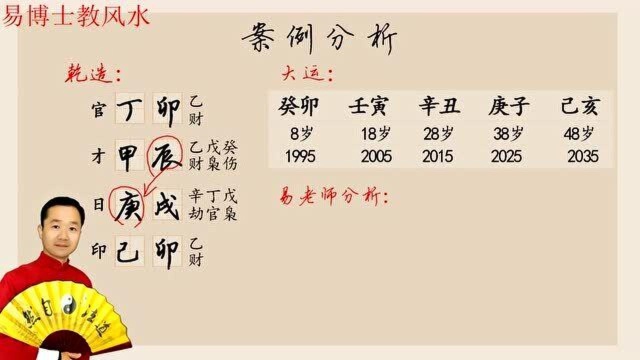 易博士教风水
案例分析
乾造：
官 丁 卯 乙财
才 甲 辰 乙戊癸 财枭伤
日 庚 戌 辛丁戊 劫官枭
印 己 卯 乙财
大运：
癸卯 壬寅 辛丑 庚子 己亥
8岁 18岁 28岁 38岁 48岁
1995 2005 2015 2025 2035
易老师分析：